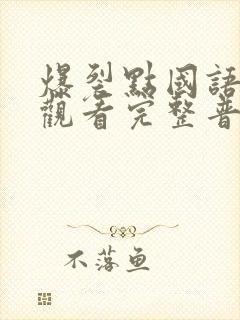 爆裂點國語
觀看完整普
不落鱼